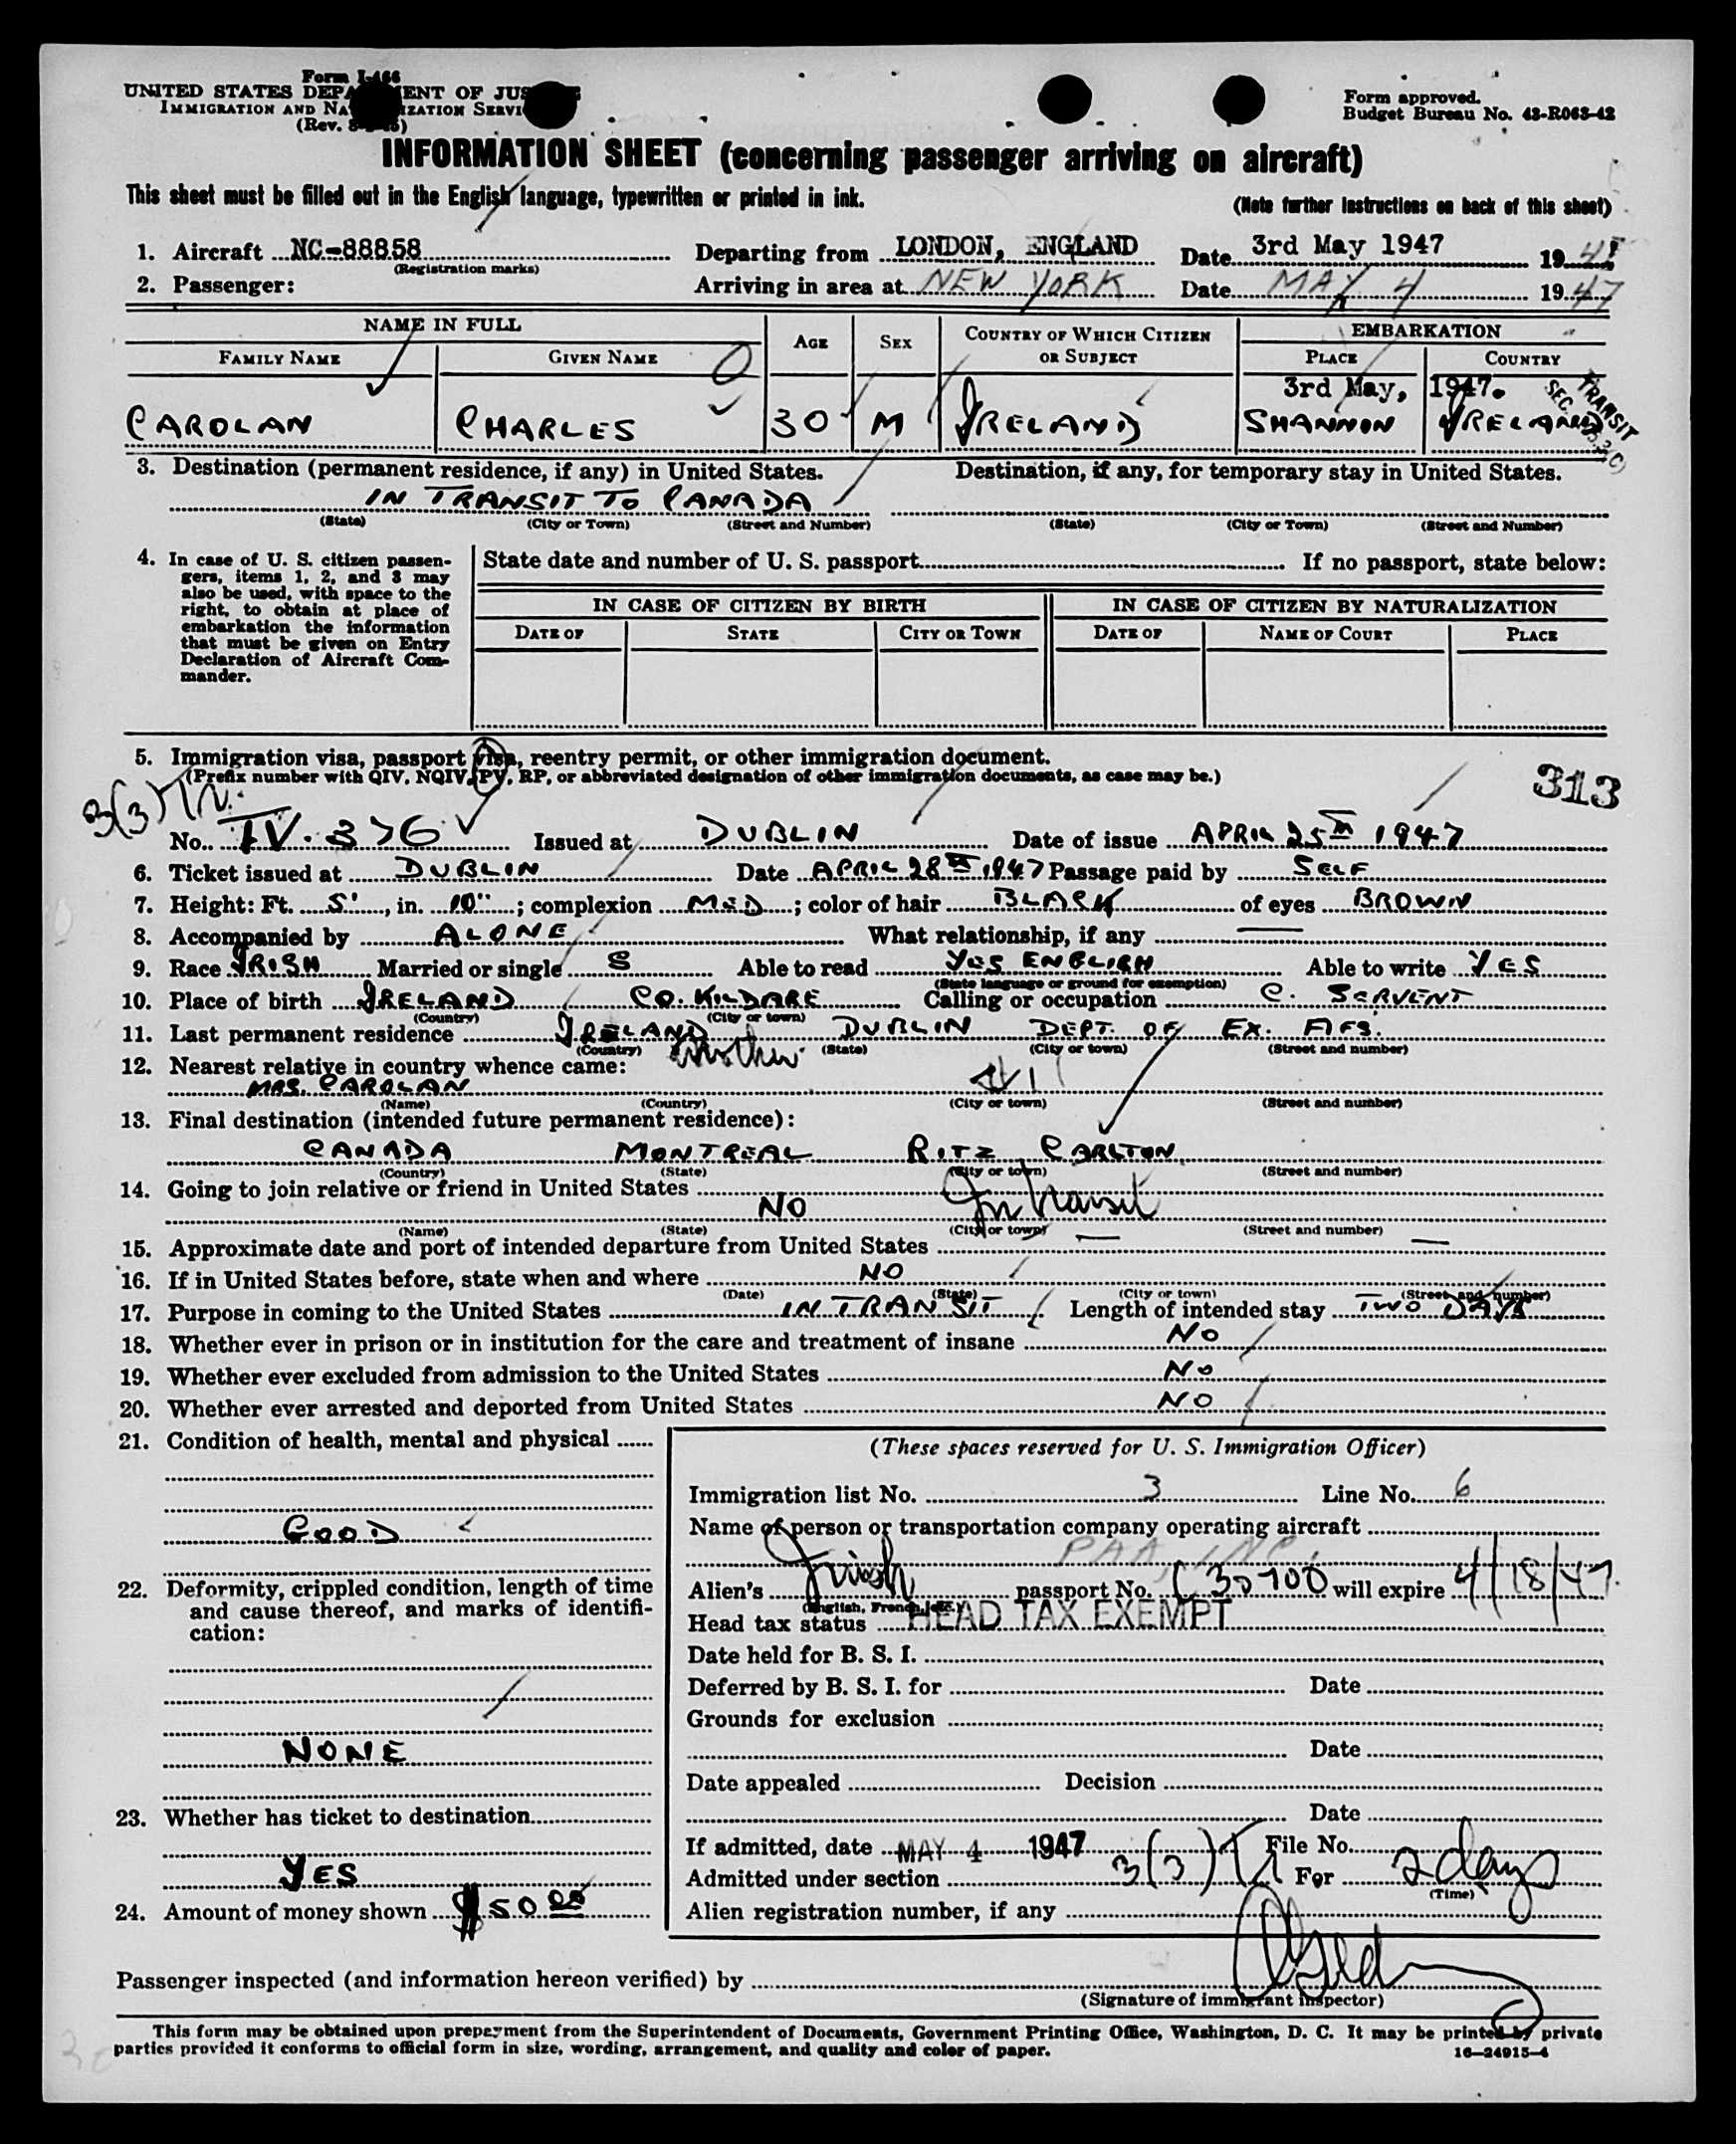 Form I-466
UNITED STATES DEPARTMENT OF JUSTICE
IMMIGRATION AND NATURALIZATION SERVICE
(Rev.
Form approved.
Budget Bureau No. 43-R063-42
INFORMATION SHEET (concerning passenger arriving on aircraft)
This sheet must be filled out in the English language, typewritten or printed in ink.
(Note further instructions on back of this sheet)
1. Aircraft NC-88858 Departing from LONDON, ENGLAND Date 3rd May 1947 19
(Registration marks)
2. Passenger: Arriving in area at NEW YORK Date MAY 4 1947
NAME IN FULL AGE SEX COUNTRY OF WHICH CITIZEN OR SUBJECT EMBARKATION
FAMILY NAME GIVEN NAME PLACE COUNTRY
3rd May, 1947.
TRANSIT
CAROLAN CHARLES 30 M IRELAND SHANNON IRELAND
3. Destination (permanent residence, if any) in United States. Destination, if any, for temporary stay in United States.
IN TRANSIT TO CANADA
(State) (City or Town) (Street and Number) (State) (City or Town) (Street and Number)
4. In case of U. S. citizen passengers, items 1, 2, and 3 may also be used, with space to the right, to obtain at place of embarkation the information that must be given on Entry Declaration of Aircraft Commander.
State date and number of U. S. passport If no passport, state below:
IN CASE OF CITIZEN BY BIRTH IN CASE OF CITIZEN BY NATURALIZATION
DATE OF STATE CITY OR TOWN DATE OF NAME OF COURT PLACE
5. Immigration visa, passport visa, reentry permit, or other immigration document.
(Prefix number with QIV, NQIV, PV, RP, or abbreviated designation of other immigration documents, as case may be.)
313
3(3)
No. TV. 376 Issued at DUBLIN Date of issue APRIL 25TH 1947
6. Ticket issued at DUBLIN Date APRIL 28TH 1947 Passage paid by SELF
7. Height: Ft. 5', in. 10"; complexion MED; color of hair BLACK of eyes BROWN
8. Accompanied by ALONE What relationship, if any —
9. Race IRISH Married or single S Able to read YES ENGLISH Able to write YES
(State language or ground for exemption)
10. Place of birth IRELAND CO. KILDARE Calling or occupation C. SERVENT
(Country) (City or town)
11. Last permanent residence IRELAND DUBLIN DEPT. OF EX. AFFS.
(Country) (State) (City or town) (Street and number)
12. Nearest relative in country whence came: mother
MRS. CAROLAN
(Name) (Country) (City or town) (Street and number)
13. Final destination (intended future permanent residence):
CANADA MONTREAL RITZ CARLTON
(Country) (State) (City or town) (Street and number)
14. Going to join relative or friend in United States
NO In transit
(Name) (State) (City or town) (Street and number)
15. Approximate date and port of intended departure from United States — —
16. If in United States before, state when and where NO
(Date) (State) (City or town) (Street and number)
17. Purpose in coming to the United States IN TRANSIT Length of intended stay TWO DAYS
18. Whether ever in prison or in institution for the care and treatment of insane NO
19. Whether ever excluded from admission to the United States NO
20. Whether ever arrested and deported from United States NO
21. Condition of health, mental and physical
GOOD
22. Deformity, crippled condition, length of time and cause thereof, and marks of identification:
NONE
23. Whether has ticket to destination
YES
24. Amount of money shown $50 00
(These spaces reserved for U. S. Immigration Officer)
Immigration list No. 3 Line No. 6
Name of person or transportation company operating aircraft
PAA INC.
Alien's Irish passport No. C 30700 will expire 4/18/47
(English, French, etc.)
Head tax status HEAD TAX EXEMPT
Date held for B. S. I.
Deferred by B. S. I. for Date
Grounds for exclusion
Date
Date appealed Decision
Date
If admitted, date MAY 4 1947 File No.
Admitted under section 3(3) For 2 days
(Time)
Alien registration number, if any
Passenger inspected (and information hereon verified) by
(Signature of immigrant inspector)
This form may be obtained upon prepayment from the Superintendent of Documents, Government Printing Office, Washington, D. C. It may be printed by private
parties provided it conforms to official form in size, wording, arrangement, and quality and color of paper.
16—24915-4